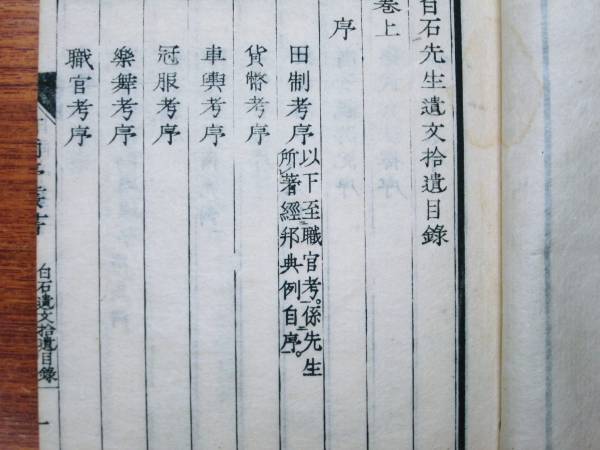 白石先生遺文拾遺目錄
卷上
序
田制考序 以下至職官考。係先生
所著經邦典例自序。
貨幣考序
車輿考序
冠服考序
樂舞考序
職官考序
白石遺文拾遺目錄 一